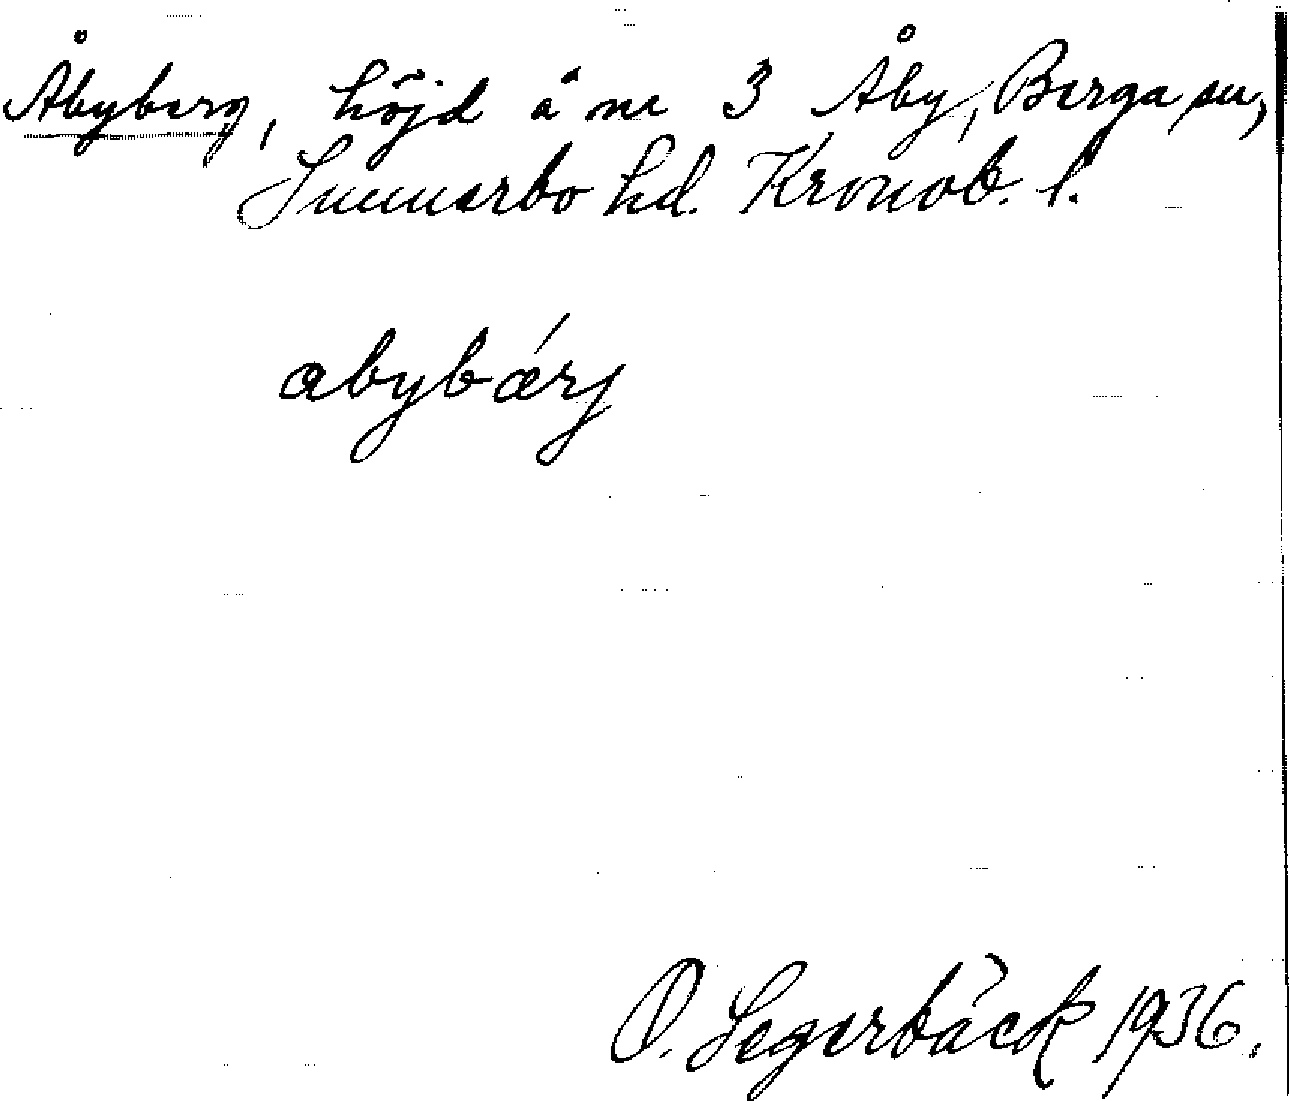 Åbyberg, höjd å nr 3 Åby, Berga sn,
Sunnerbo hd. Kronob. l.
abybǽrj
O. Segerbäck 1936.